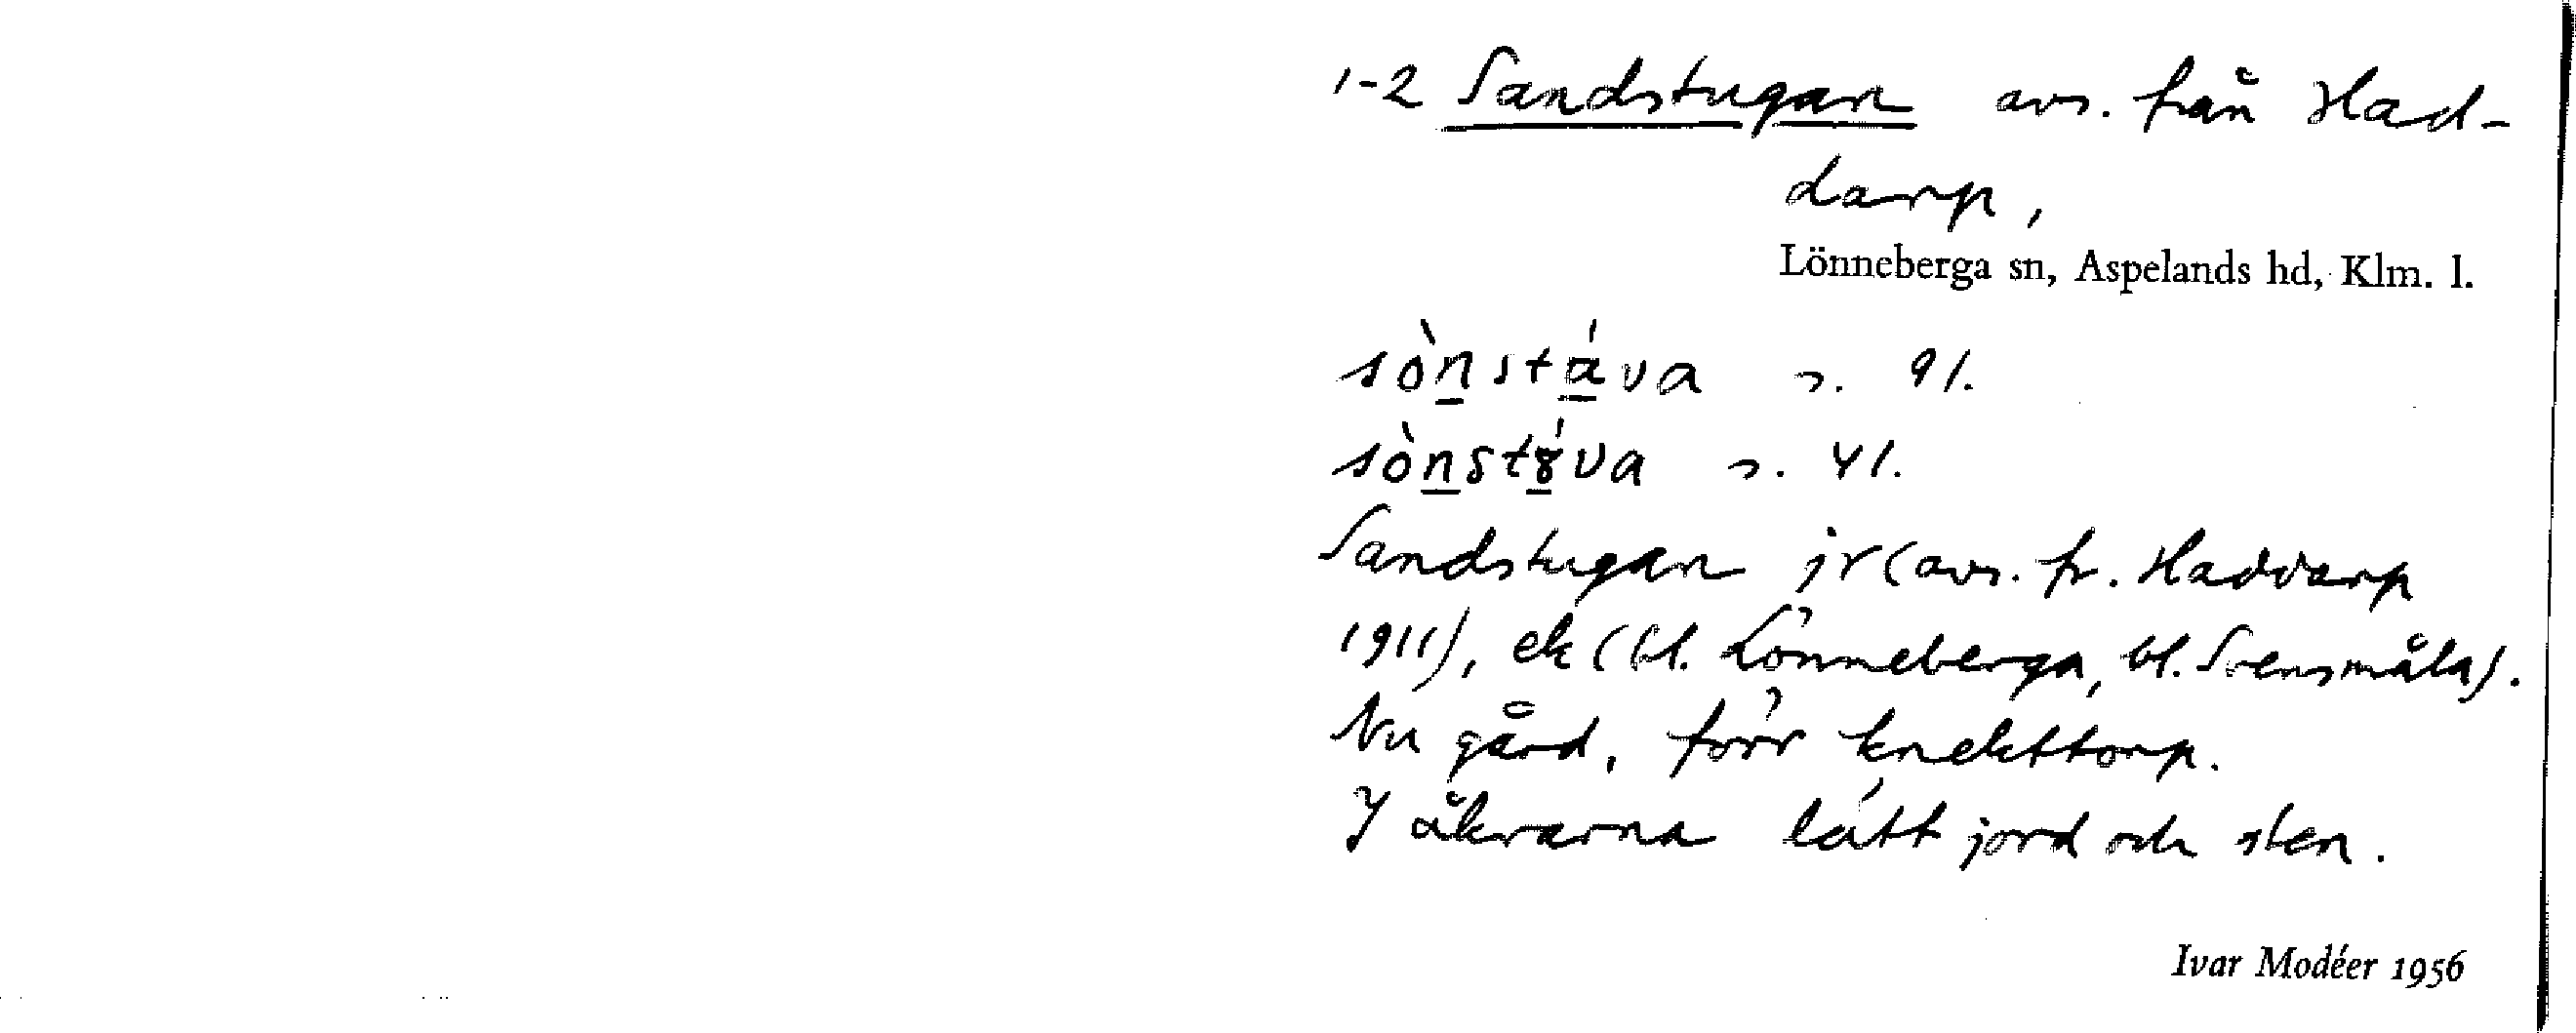 1-2 Sandstugan avs. från Had-
darp,
Lönneberga sn, Aspelands hd, Klm. l.
sòn̲stá̲va s. 91.
sòn̲st8̲́va s. 41.
Sandstugan jr (avs. fr. Haddarp
1911), ek (bl. Lönneberga, bl. Svensmåla).
Nu gård, förr knekttorp.
I åkrarna lätt jord och sten.
Ivar Modéer 1956